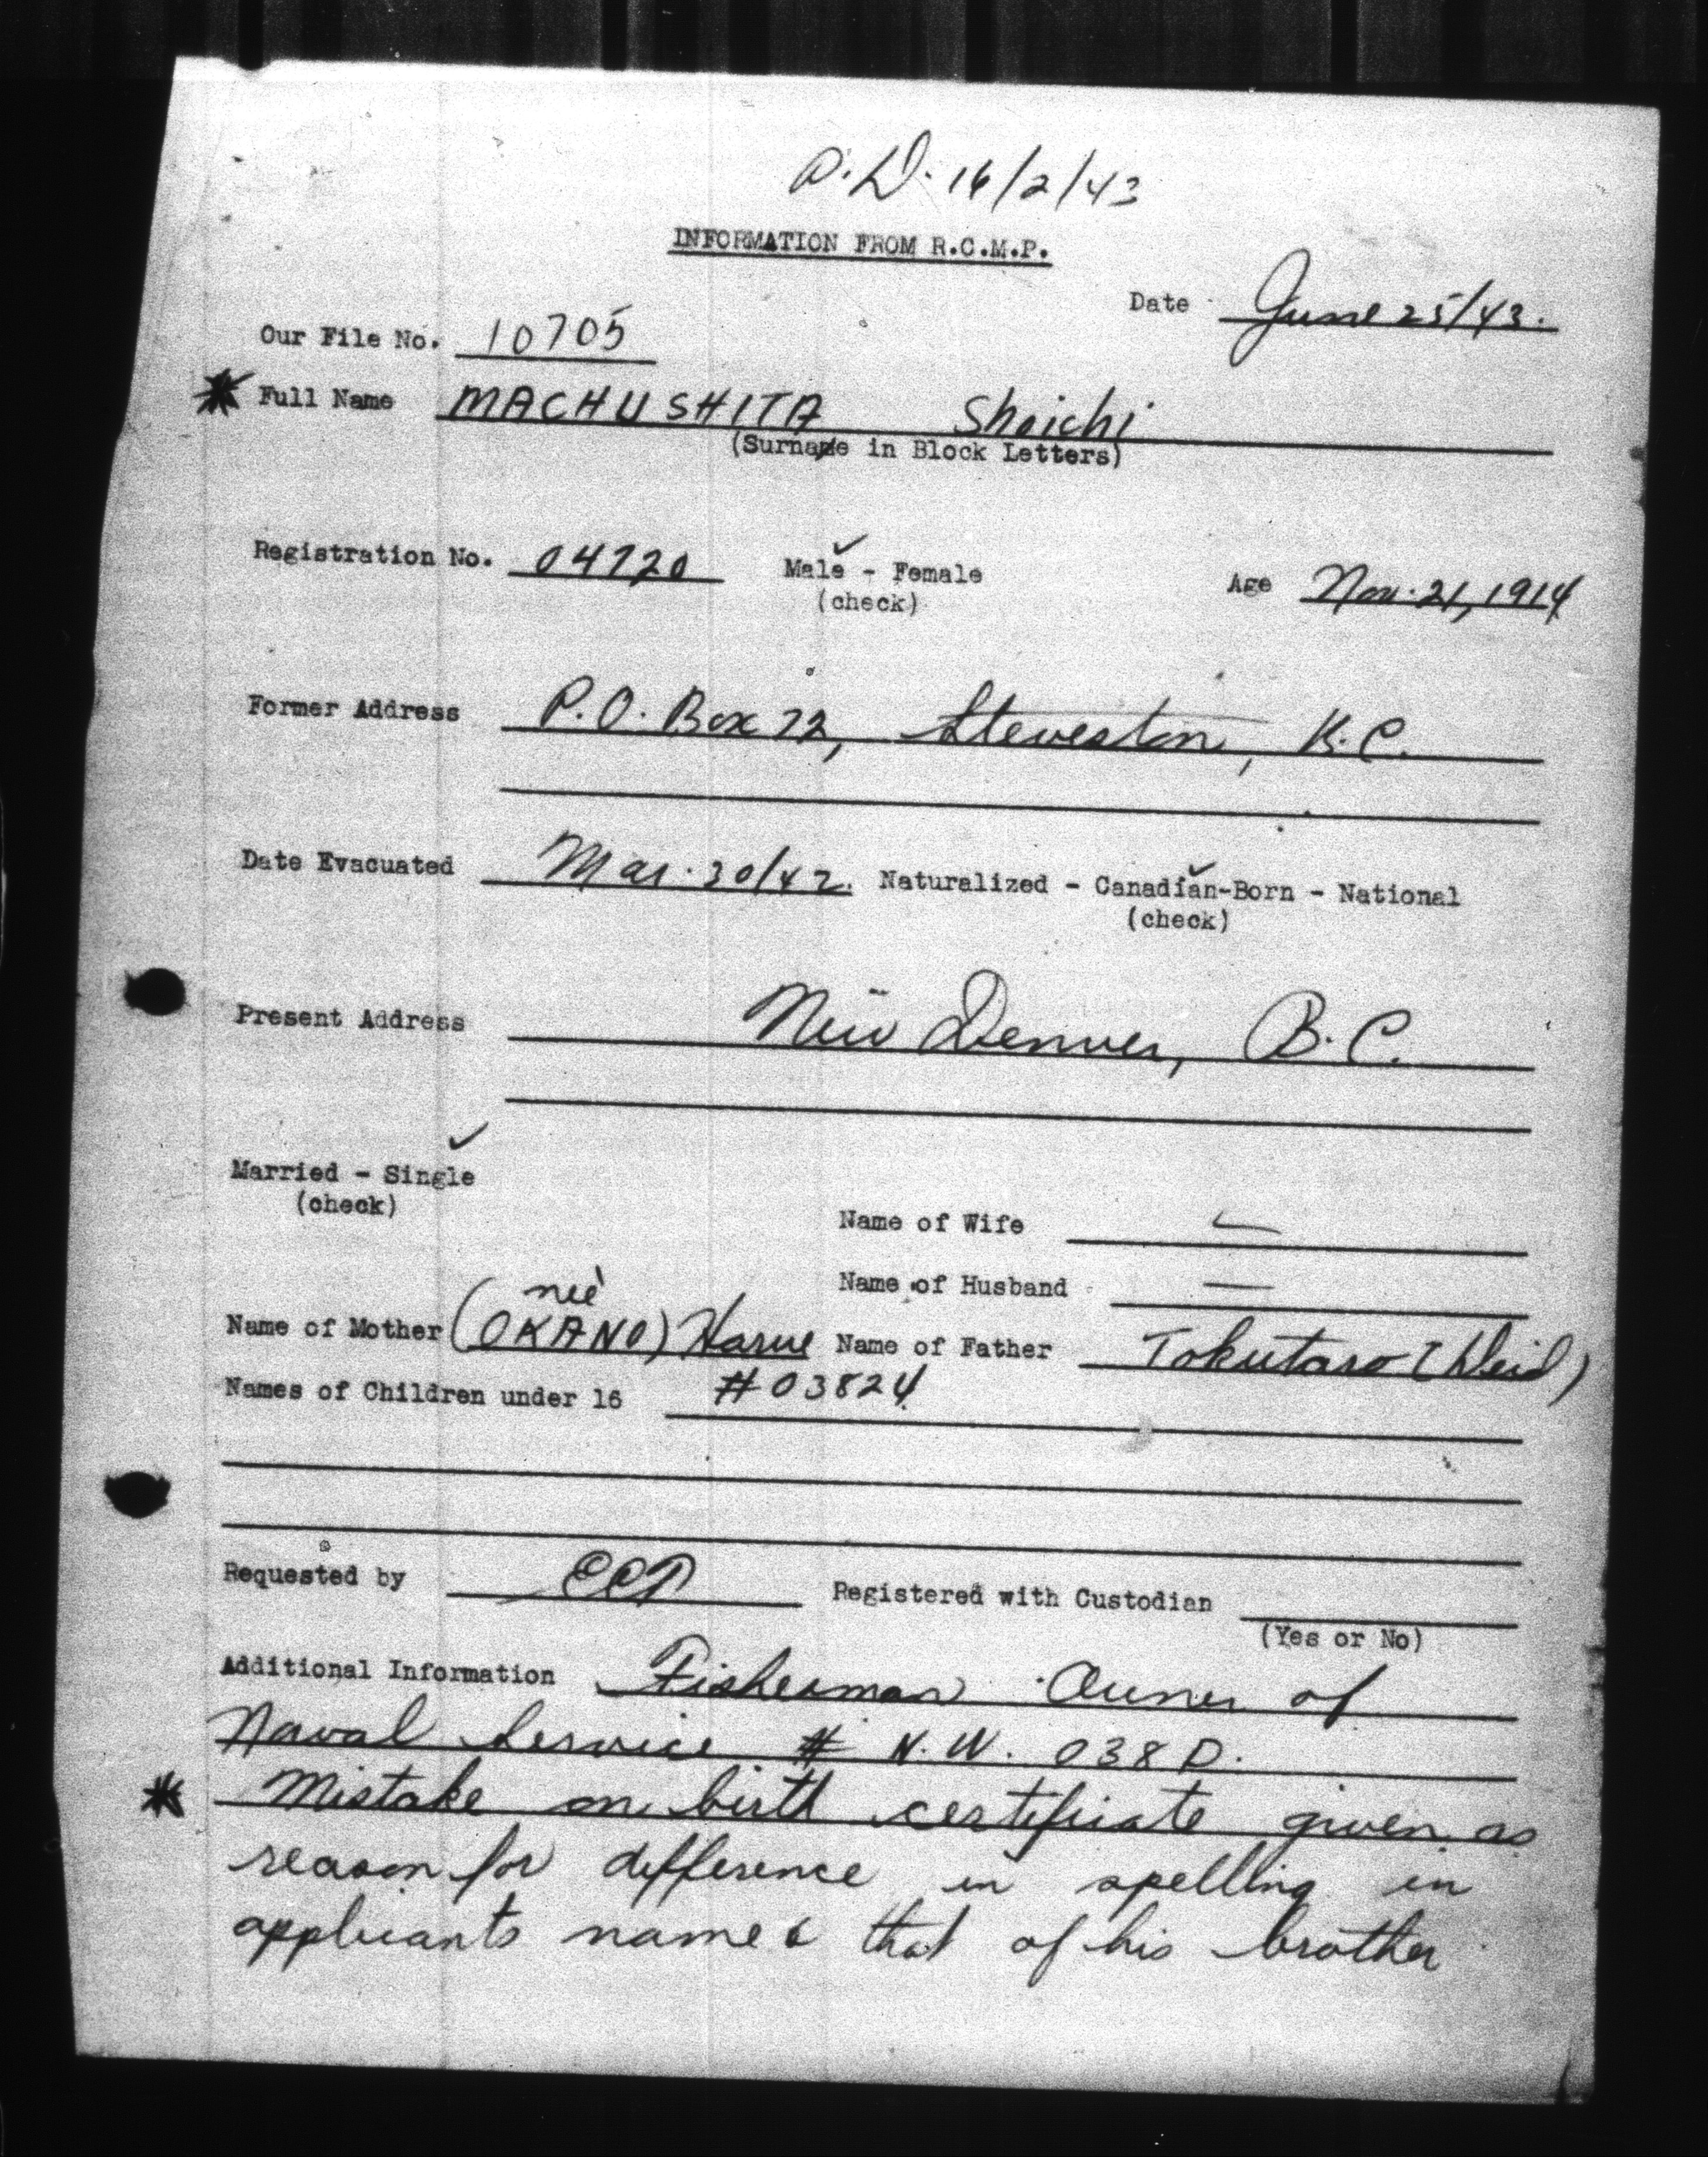 P.D. 16/2/43
INFORMATION FROM R.C.M.P.
Date June 25/43.
Our File No. 10705
* Full Name MACHUSHITA Shoichi
(Surname in Block Letters)
Registration No. 04720 Male ✓ - Female Age Nov. 21, 1914
(check)
Former Address P.O. Box 72, Steveston, B.C.
Date Evacuated Mar. 30/42. Naturalized - Canadian-Born ✓ - National
(check)
Present Address New Denver, B.C.
Married - Single ✓
(check)
Name of Wife —
Name of Husband —
Name of Mother (neé OKANO) Harue Name of Father Tokutaro (Deid)
Names of Children under 16 #03824
Requested by Registered with Custodian
(Yes or No)
Additional Information Fisherman Owner of
Naval Service # N.W. 038 D.
* Mistake on birth certificate given as
reason for difference in spelling in
applicants name & that of his brother